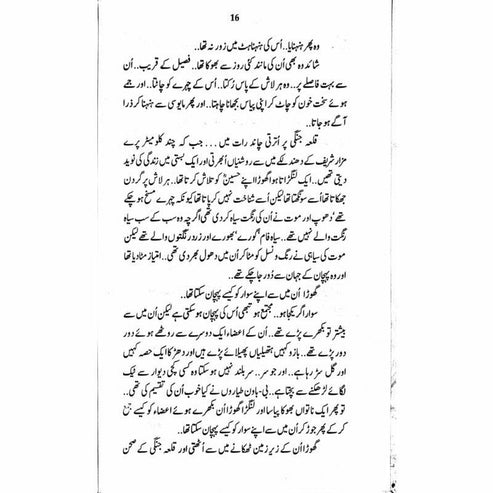 16
وہ پھر ہنہنایا.. اُس کی ہنہناہٹ میں زور نہ تھا..
شائد وہ بھی اُن کی مانند کئی روز سے بھوکا تھا.. فصیل کے قریب.. اُن
سے بہت فاصلے پر.. وہ ہر لاش کے پاس رُکتا.. اُس کے چہرے کو چاٹتا.. اور جمے
ہوئے سخت خون کو چاٹ کر اپنی پیاس بجھانا چاہتا.. اور پھر مایوسی سے ہنہنا کر ذرا
آگے ہو جاتا..
قلعہ جنگی پر اُترتی چاند رات میں... جب کہ چند کلومیٹر پرے
مزار شریف کے دھندلکے میں سے روشنیاں اُبھرتی اور ایک بستی میں زندگی کی نوید
دیتی تھیں.. ایک لنگڑاتا ہوا گھوڑا اپنے حسینؓ کو تلاش کرتا تھا.. ہر لاش پر گردن
جھکاتا تھا اُسے سونگھتا تھا لیکن اُسے شناخت نہیں کر پاتا تھا کیونکہ چہرے مسخ ہو چکے
تھے، دھوپ اور موت نے اُن کی رنگت سیاہ کر دی تھی اگرچہ وہ سب کے سب سیاہ
رنگت والے نہیں تھے.. سیاہ فام، گورے، بھورے اور زرد رنگتوں والے تھے لیکن
موت کی سیاہی نے رنگ و نسل کو مٹا کر اُن میں دھول بھر دی تھی.. امتیاز مٹا دیا تھا
اور وہ پہچان کے جہان سے دُور جا چکے تھے..
گھوڑا اُن میں سے اپنے سوار کو کیسے پہچان سکتا تھا..
سوار اگر یکجا ہو.. مجتمع ہو تبھی اُس کی پہچان ہو سکتی ہے لیکن اُن میں سے
بیشتر تو بکھرے پڑے تھے.. اُن کے اعضاء ایک دوسرے سے روٹھے ہوئے دور
دور پڑے تھے.. بازو کہیں ہتھیلیاں پھیلائے پڑے ہیں اور دھڑ کا ایک حصہ کہیں
اور گل سڑ رہا ہے.. اور جو سر.. سر بلند نہیں ہو سکتا وہ کسی کچی دیوار سے ٹیک
لگائے لڑھکنے سے بچتا ہے.. بی-باون طیاروں نے کیا خوب اُن کی تقسیم کی تھی..
تو پھر ایک ناتواں بھوکا پیاسا اور لنگڑا گھوڑا اُن بکھرے ہوئے اعضاء کو کیسے جمع
کر کے پھر جوڑ کر اُن میں سے اپنے سوار کو کیسے پہچان سکتا تھا..
گھوڑا اُن کے زیر زمین ٹھکانے میں سے اُٹھتی اور قلعہ جنگی کے صحن